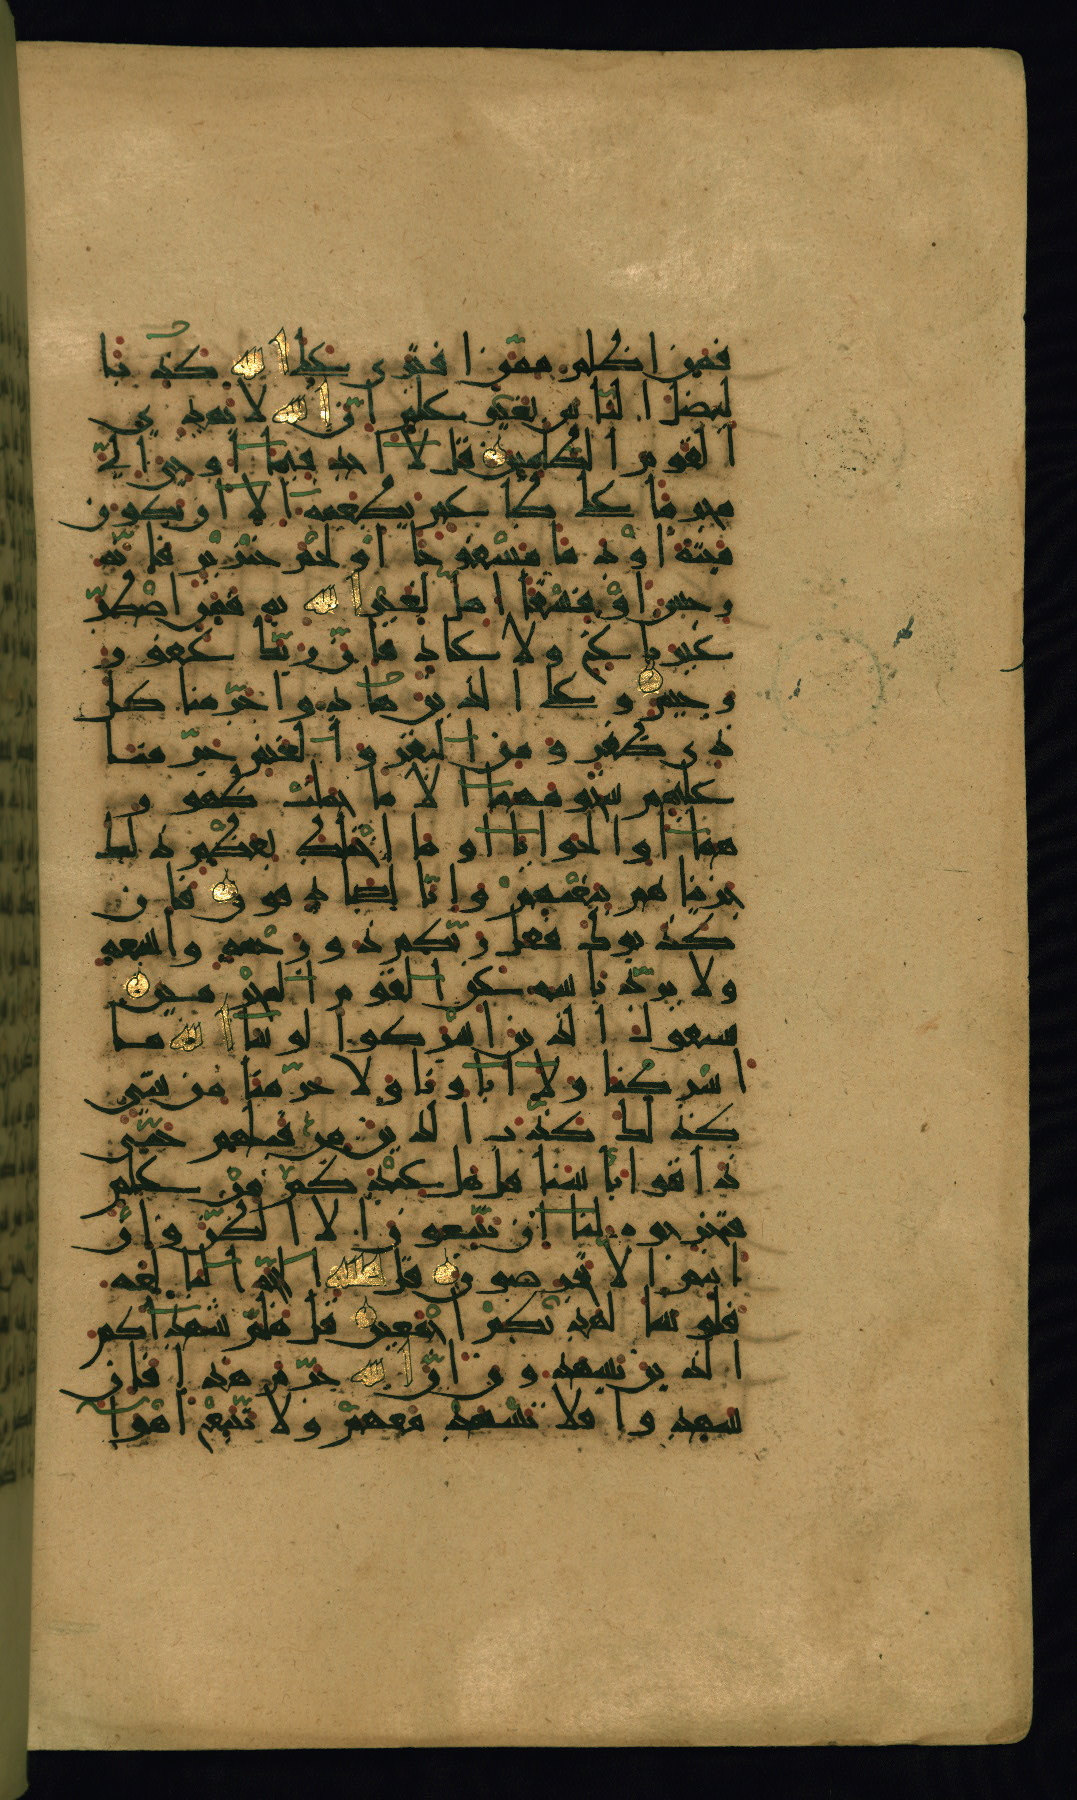 فمن اظلم ممن افترى على الله كذبا
ليضل الناس بغير علم ان الله لا يهدي
القوم الظلمين قل لا اجد فيما اوحي الي
محرما على طاعم يطعمه الا ان يكون
ميتة او دما مسفوحا او لحم خنزير فانه
رجس او فسقا اهل لغير الله به فمن اضطر
غير باغ ولا عاد فان ربك غفور
رحيم وعلى الذين هادوا حرمنا كل
ذي ظفر ومن البقر والغنم حرمنا
عليهم شحومهما الا ما حملت ظهور
هما او الحوايا او ما اختلط بعظم ذلك
جزينهم ببغيهم وانا لصادقون فان
كذبوك فقل ربكم ذو رحمة واسعة
ولا يرد باسه عن القوم المجرمين
سيقول الذين اشركوا لو شا الله ما
اشركنا ولا اباونا ولا حرمنا من شي
كذلك كذب الذين من قبلهم حتى
ذاقوا باسنا قل هل عندكم من علم
فتخرجوه لنا ان تتبعون الا الظن وان
انتم الا تخرصون قل فلله الحجة البلغة
فلو شا لهديكم اجمعين قل هلم شهداكم
الذين يشهدون ان الله حرم هذا فان
شهدوا فلا تشهد معهم ولا تتبع اهوا